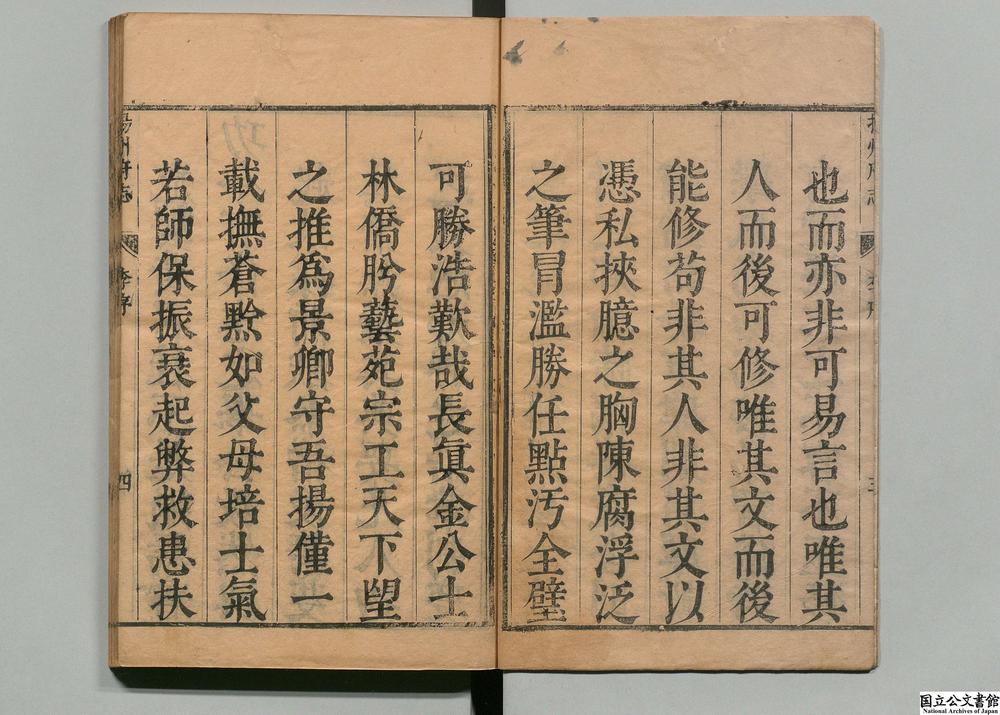 也而亦非可易言也唯其
人而後可修唯其文而後
能修苟非其人非其文以
憑私挾臆之胸陳腐浮泛
之筆冒濫勝任點汚全璧
可勝浩歎哉長眞金公士
林僑肹藝苑宗工天下望
之推爲景卿守吾揚僅一
載撫蒼黔如父母培士氣
若師保振衰起弊救患扶
揚州府志
李序
四
国立公文書館
National Archives of Japan